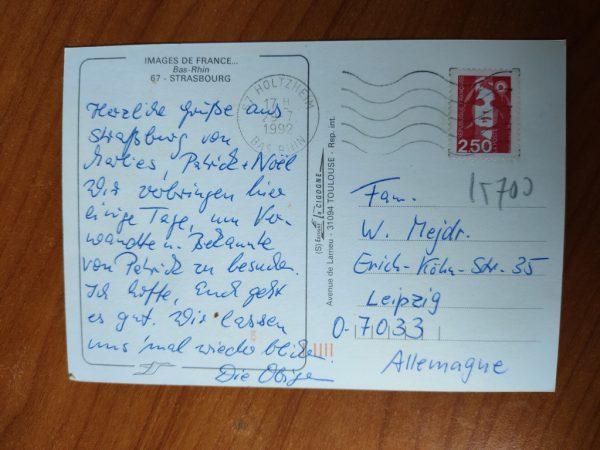 IMAGES DE FRANCE...
Bas-Rhin
67 - STRASBOURG
Herzliche Grüße aus
Straßburg von
Marlies, Patrick + Noël
Wir verbringen hier
einige Tage, um Ver-
wandte u. Bekannte
von Patrick zu besuchen.
Ich hoffe, Euch geht
es gut. Wir lassen
uns 'mal wieder blicken.
Die Obigen
67 HOLTZHEIM
17 H
7
1992
BAS RHIN
Editions "la CIGOGNE"
Avenue de Larrieu - 31094 TOULOUSE - Rep. int.
2,50
15700
Fam.
W. Mejdr.
Erich-Köhn-Str. 35
Leipzig
O-7033
Allemagne